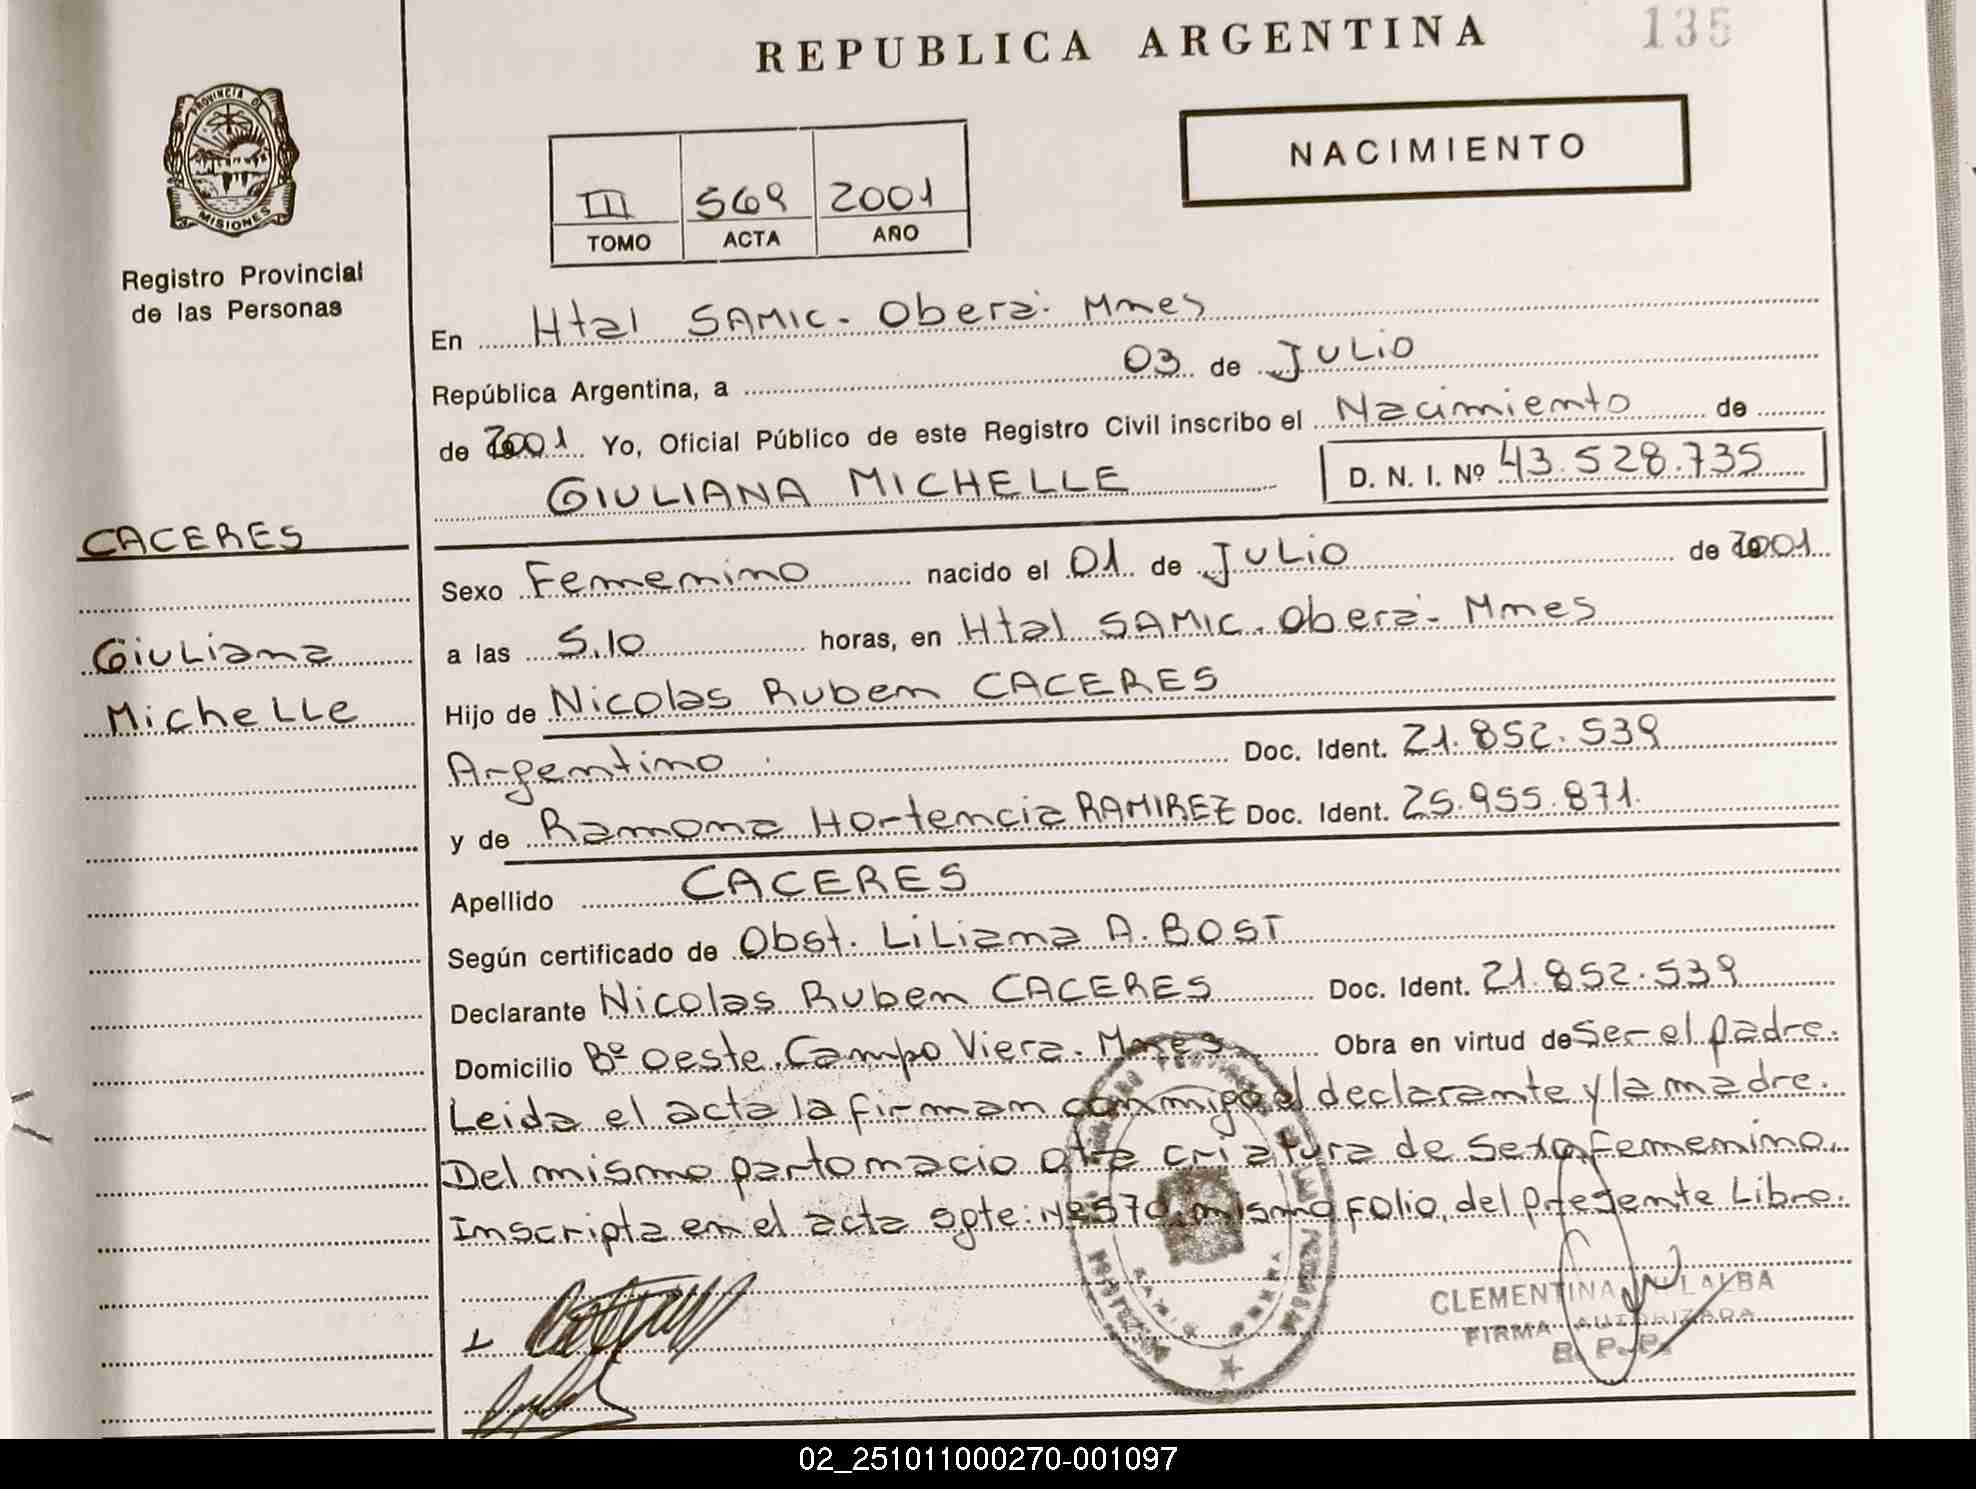 REPUBLICA ARGENTINA
135
PROVINCIA DE
MISIONES
Registro Provincial
de las Personas
NACIMIENTO
III 569 2001
TOMO ACTA AÑO
En Htal SAMIC. Oberá. Mnes
República Argentina, a 03 de JULIO
de 2001 Yo, Oficial Público de este Registro Civil inscribo el Nacimiento de
GIULIANA MICHELLE D. N. I. Nº 43.528.735
CACERES
Giuliana
Michelle
Sexo Femenino nacido el 01 de JULIO de 2001
a las 5.10 horas, en Htal SAMIC. Oberá. Mnes
Hijo de Nicolas Ruben CACERES
Argentino Doc. Ident. 21.852.539
y de Ramona Hortencia RAMIREZ Doc. Ident. 25.955.871.
Apellido CACERES
Según certificado de Obst. Liliana A. BOST
Declarante Nicolas Ruben CACERES Doc. Ident. 21.852.539
Domicilio Bº oeste. Campo Viera. Mnes Obra en virtud de Ser el padre.
Leida el acta la firman conmigo el declarante y la madre.
Del mismo parto nacio otra criatura de sexo femenino.
Inscripta en el acta sgte: Nº 570 mismo Folio, del presente Libro.
CLEMENTINA VILLALBA
FIRMA AUTORIZADA
R. P. P.
02_251011000270-001097